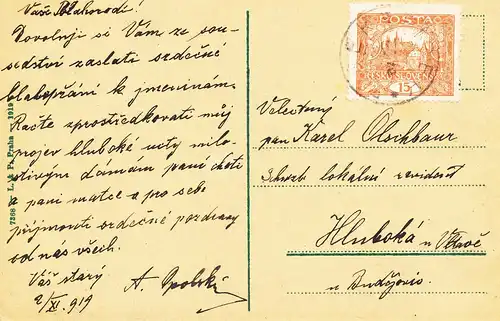 Vaše Blahorodí!
Dovoluji si Vám ze sou-
sedství zaslati srdečné
blahopřání k jmeninám.
Račte zprostředkovati můj
projev hluboké úcty milo-
stivým dámám paní choti
a paní matce a pro sebe
přijmouti srdečné pozdravy
od nás všech.
Váš starý
A.
2/XI. 919
7266 L. & P., Praha 1919
POŠTA
ČESKO-SLOVENSKÁ
15
Velectěný
pan Karel Olschbaur
lokální
Hluboká n Vltavě
u Budějovic.